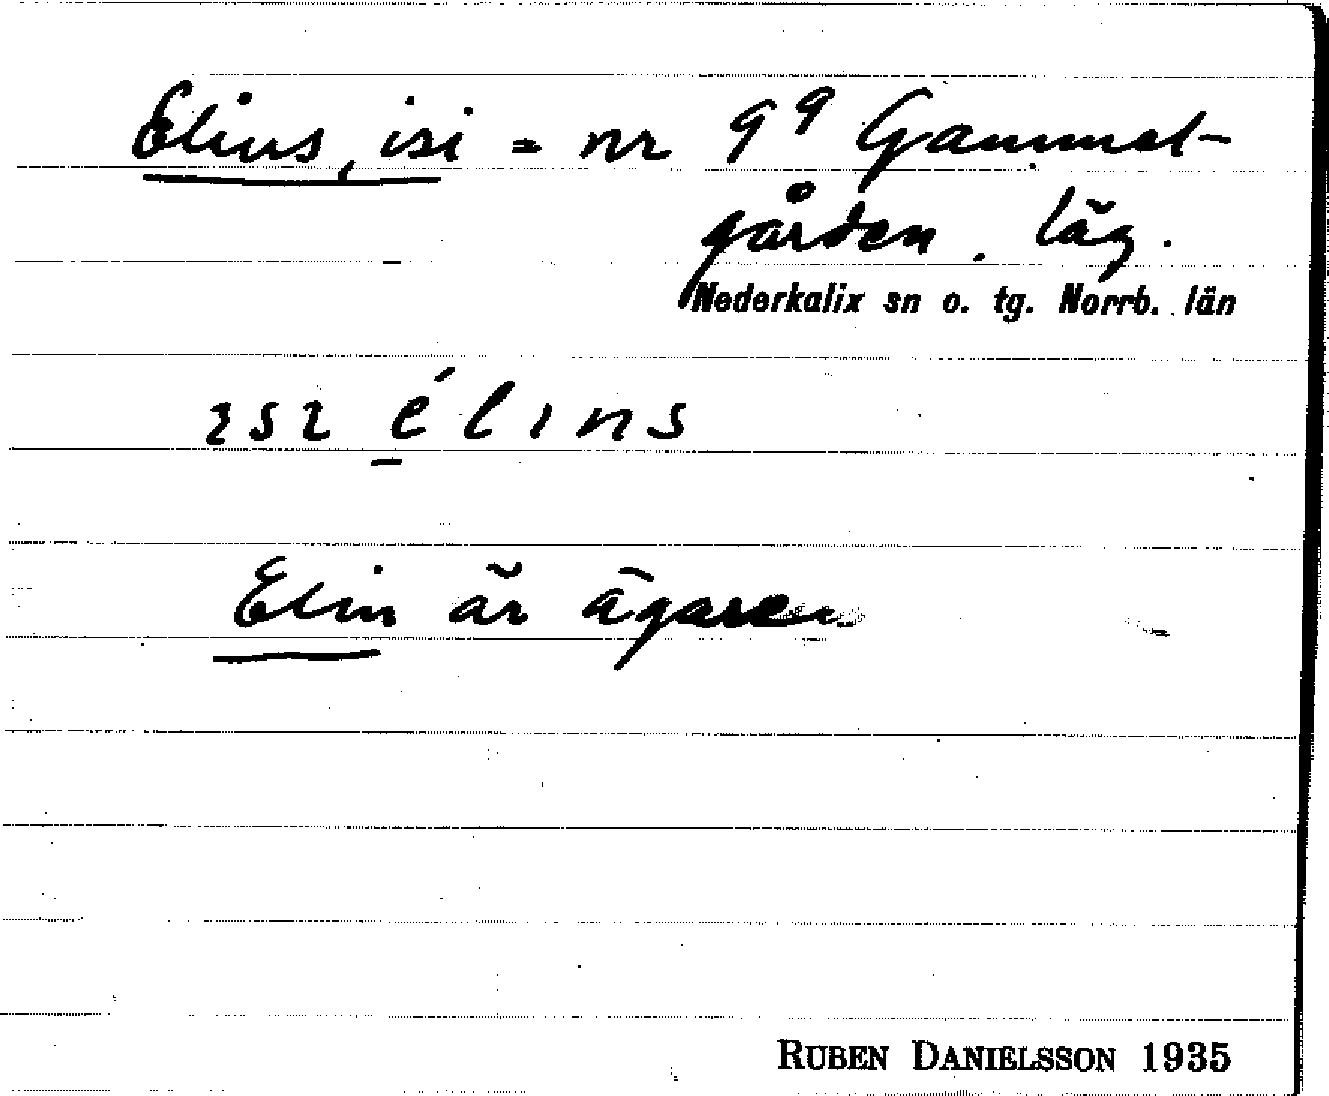 Elins, isi = nr 9⁹ Gammel-
gården. läg.
Nederkalix sn o. tg. Norrb. län
ɩsɩ élıns
Elin är ägaren
RUBEN DANIELSSON 1935